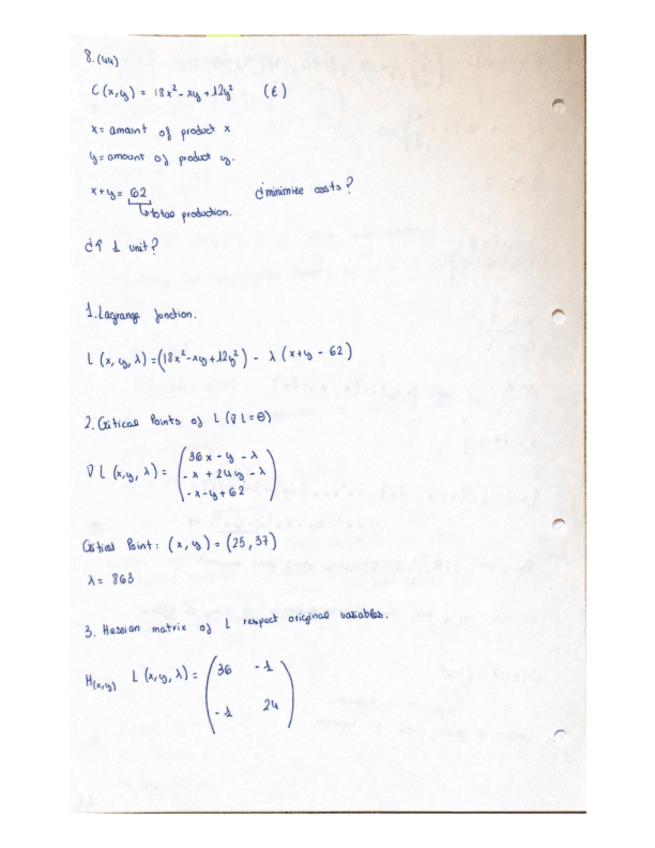 8.(44)
C(x,y) = 18x² - xy + 12y² (€)
x = amount of product x
y = amount of product y.
x+y = 62 ¿minimize costs?
↳ total production.
¿↑ 1 unit?
1. Lagrange function.
L (x, y, λ) = (18x² - xy + 12y²) - λ (x+y - 62)
2. Critical Points of L (∇L = θ)
∇L (x,y, λ) = ( 36x - y - λ
- x + 24y - λ
- x - y + 62 )
Critical Point: (x, y) = (25, 37)
λ = 863
3. Hessian matrix of L respect original variables.
H(x,y) L (x,y, λ) = ( 36 -1
-1 24 )